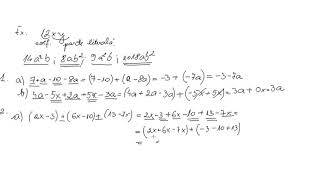 Ex. 12xy
coef. parte literală
14a²b ; 8ab² ; 9a²b ; 2018ab²
1. a) 7+a-10-8a = (7-10)+(a-8a) = -3+(-7a) = -3-7a
b) 4a-5x+2a+5x-3a = (4a+2a-3a)+(-5x+5x) = 3a+0x = 3a
2. a) (2x-3)+(6x-10)+(13-7x) = 2x-3+6x-10+13-7x =
= (2x+6x-7x)+(-3-10+13)
=